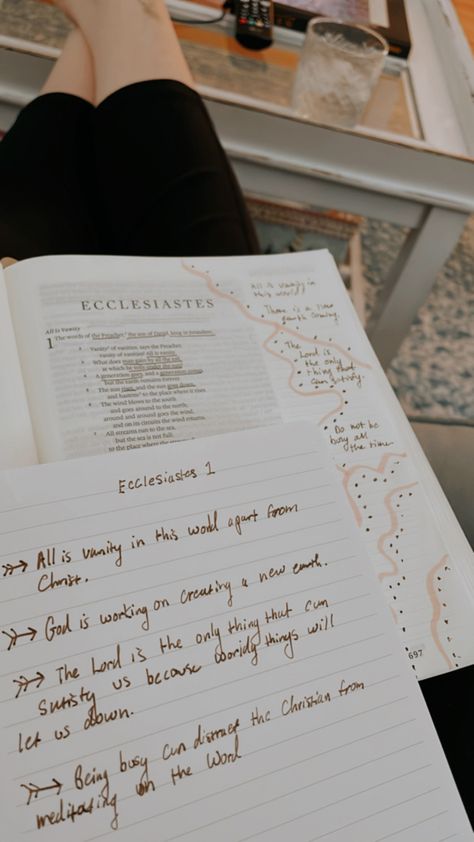 ECCLESIASTES
All Is Vanity
1 The words of the Preacher, the son of David, king in Jerusalem.
2 Vanity of vanities, says the Preacher,
vanity of vanities! All is vanity.
3 What does man gain by all the toil
at which he toils under the sun?
4 A generation goes, and a generation comes,
but the earth remains forever.
5 The sun rises, and the sun goes down,
and hastens to the place where it rises.
6 The wind blows to the south
and goes around to the north;
around and around goes the wind,
and on its circuits the wind returns.
7 All streams run to the sea,
but the sea is not full;
to the place where the streams
All is vanity in
this world!
There is a new
earth coming.
The
Lord is
the only
thing that
can satisfy.
Do not be
busy all
the time.
697
Ecclesiastes 1
All is vanity in this world apart from
Christ.
God is working on creating a new earth.
The Lord is the only thing that can
satisfy us because worldly things will
let us down.
Being busy can distract the Christian from
meditating on the Word